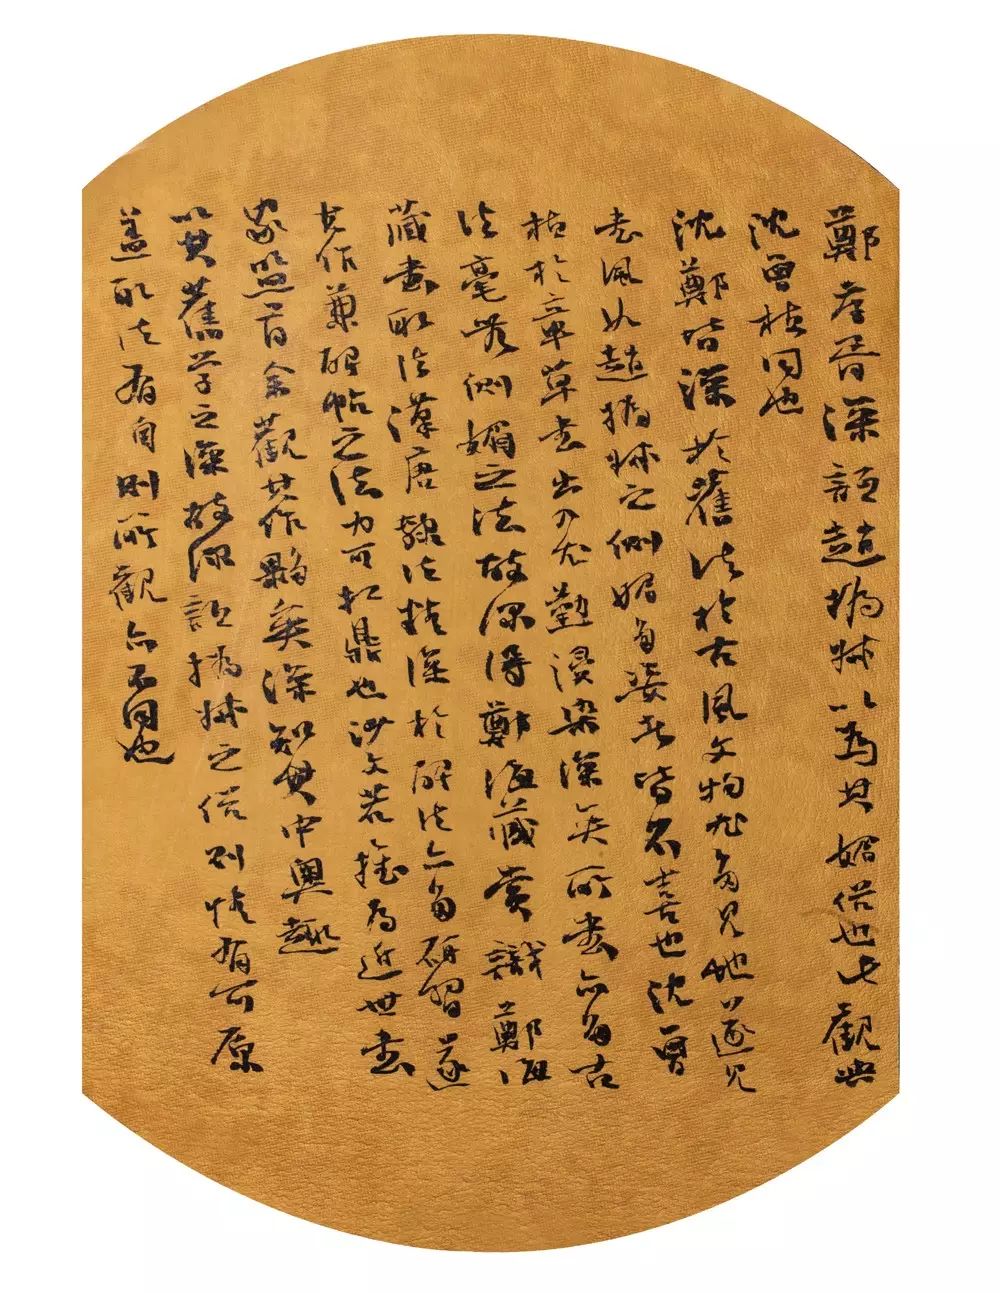 鄭孝胥深詆趙撝叔以為其媚俗也此觀與
沈曾植同也
沈鄭皆深於舊法於古風文物尤多見地遂見
書風如趙撝叔之側媚多姿者皆不喜也沈曾
植於章草書出力尤勤浸染深矣所書亦多古
法毫無側媚之法故深得鄭海藏賞識鄭海
藏書取法漢唐隸法精深於碑法亦多研習遂
其作兼碑帖之法力可扛鼎也沙文若推為近世書
家盟首余觀其作夥矣深知其中奧趣
以其舊學之深故深詆撝叔之俗則情有可原
蓋取法有自則所觀亦不同也